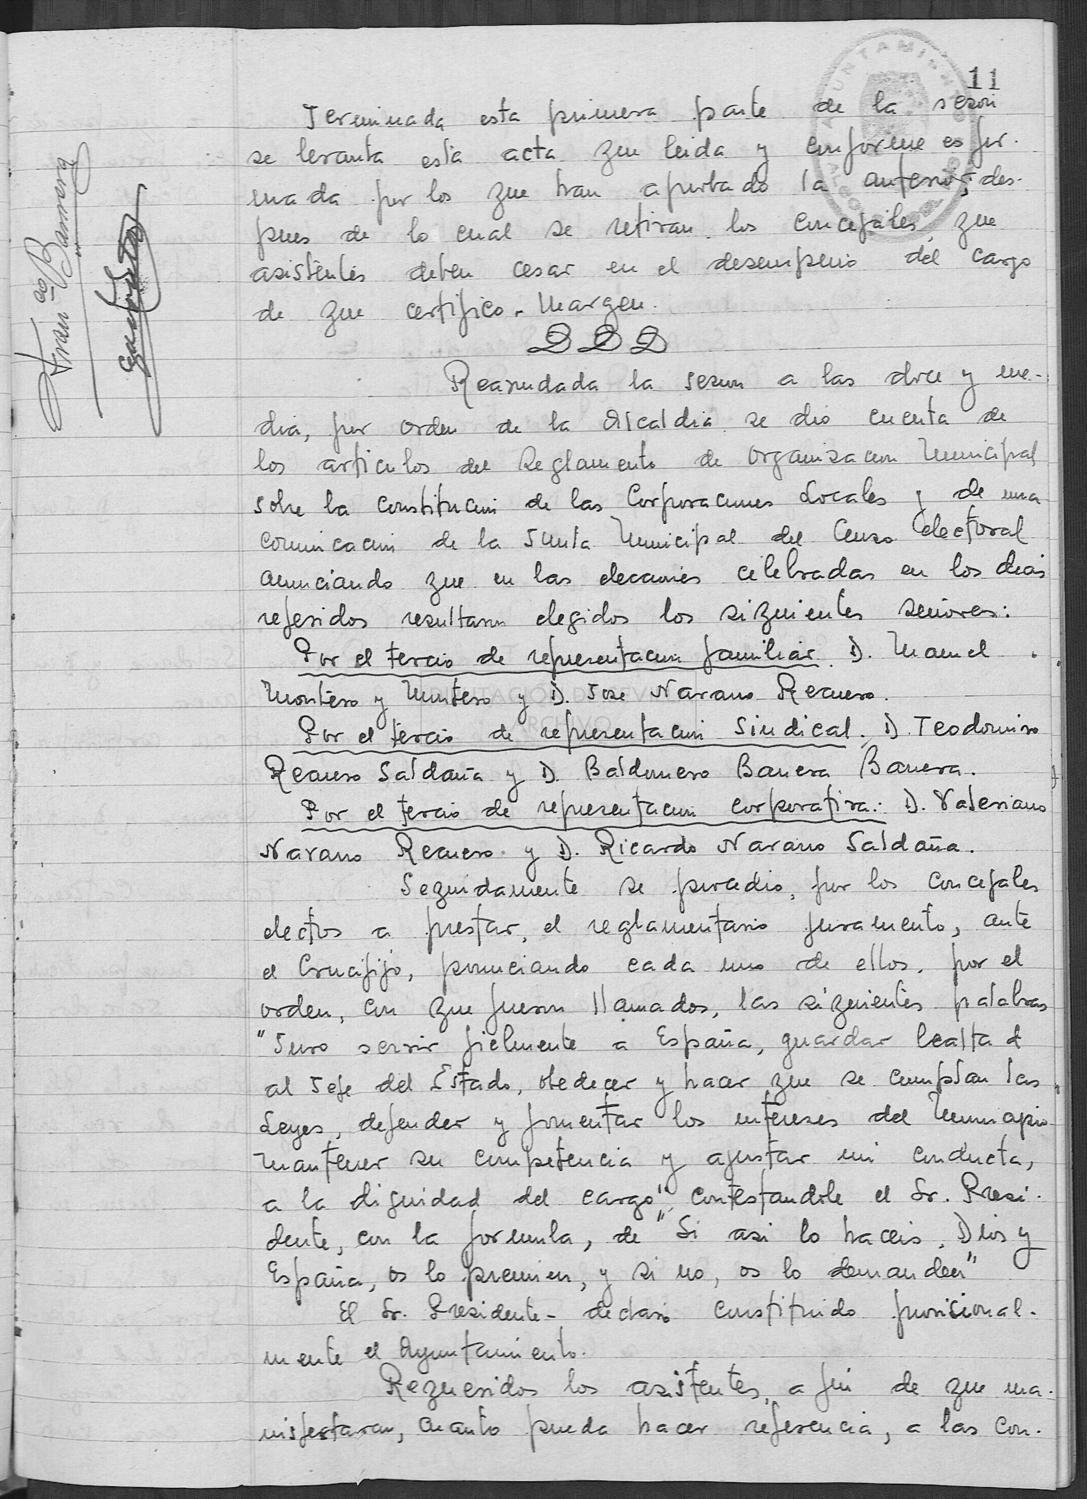 11
Terminada esta primera parte de la sesion
se levanta esta acta que leida y conforme es fir-
mada por los que han aprobado la anterior, des-
pues de lo cual se retiran los concejales, que
asistentes deben cesar en el desempeño del cargo
de que certifico. Margen.
Reanudada la sesion a las doce y me-
dia, por orden de la Alcaldia se dio cuenta de
los articulos del Reglamento de Organizacion Municipal
sobre la constitucion de las Corporaciones Locales y de una
comunicacion de la Junta Municipal del Censo electoral
anunciando que en las elecciones celebradas en los dias
referidos resultaron elegidos los siguientes señores:
Por el tercio de representacion familiar. D. Manuel
Montero y Montero y D. Jose Navarro Recuero.
Por el tercio de representacion Sindical. D. Teodomiro
Recuero Saldaña y D. Baldomero Barrera Barrera.
Por el tercio de representacion corporativa: D. Valeriano
Navarro Recuero y D. Ricardo Navarro Saldaña.
Seguidamente se procedio, por los concejales
electos a prestar, el reglamentario juramento, ante
el Crucifijo, pronunciando cada uno de ellos, por el
orden, con que fueron llamados, las siguientes palabras
"Juro servir fielmente a España, guardar lealtad
al Jefe del Estado, obedecer y hacer que se cumplan las
Leyes, defender y fomentar los intereses del Municipio
mantener su competencia y ajustar mi conducta,
a la dignidad del cargo", contestandole el Sr. Presi-
dente, con la formula, de "Si asi lo haceis, Dios y
España, os lo premien, y si no, os lo demanden"
El Sr. Presidente - declaro constituido provisional-
mente el Ayuntamiento.
Requeridos los asistentes, a fin de que ma-
nifestaran, cuanto pueda hacer referencia, a las con-
Fran.co Barrera